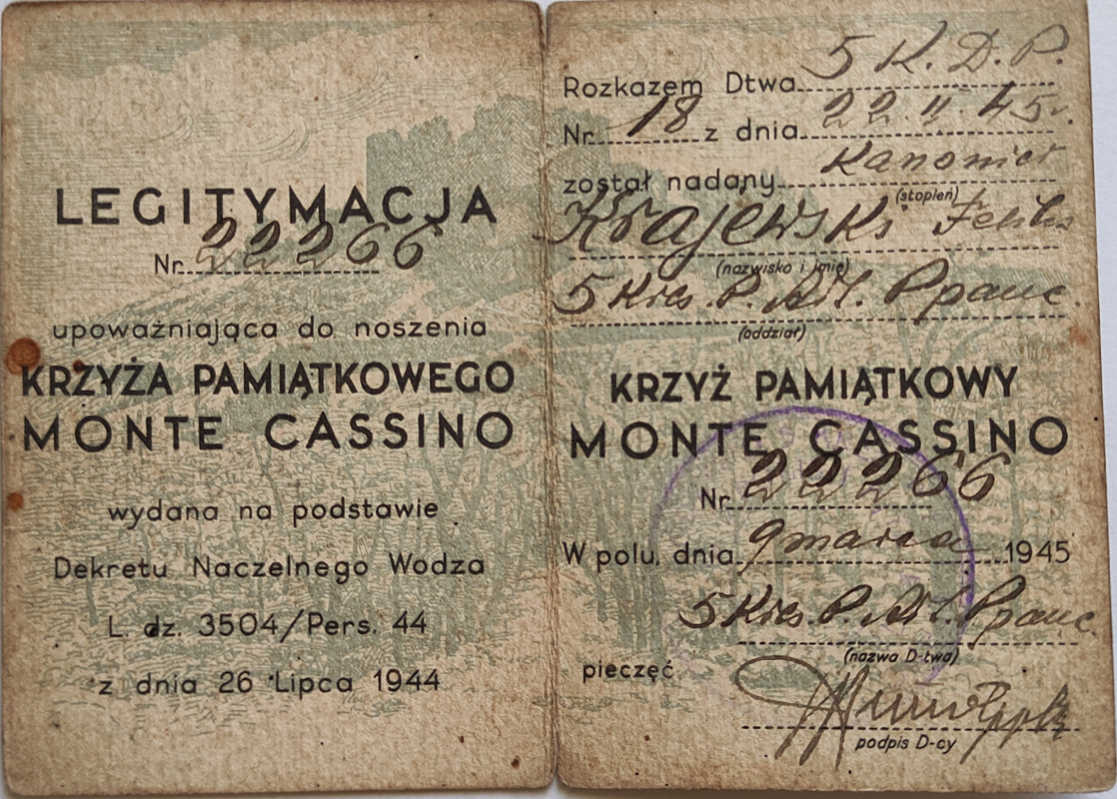 LEGITYMACJA
Nr. 22266
upoważniająca do noszenia
KRZYŻA PAMIĄTKOWEGO
MONTE CASSINO
wydana na podstawie
Dekretu Naczelnego Wodza
L. dz. 3504/Pers. 44
z dnia 26 Lipca 1944
Rozkazem Dtwa 5 K. D. P.
Nr. 18 z dnia 22. II. 45r.
został nadany Kanonier
(stopień)
Krajewski Feliks
(nazwisko i imię)
5 Kres. P. Art. Ppanc.
(oddział)
KRZYŻ PAMIĄTKOWY
MONTE CASSINO
Nr. 22266
W polu, dnia 9 marca 1945
5 Kres. P. Art. Ppanc.
(nazwa D-twa)
pieczęć
podpis D-cy